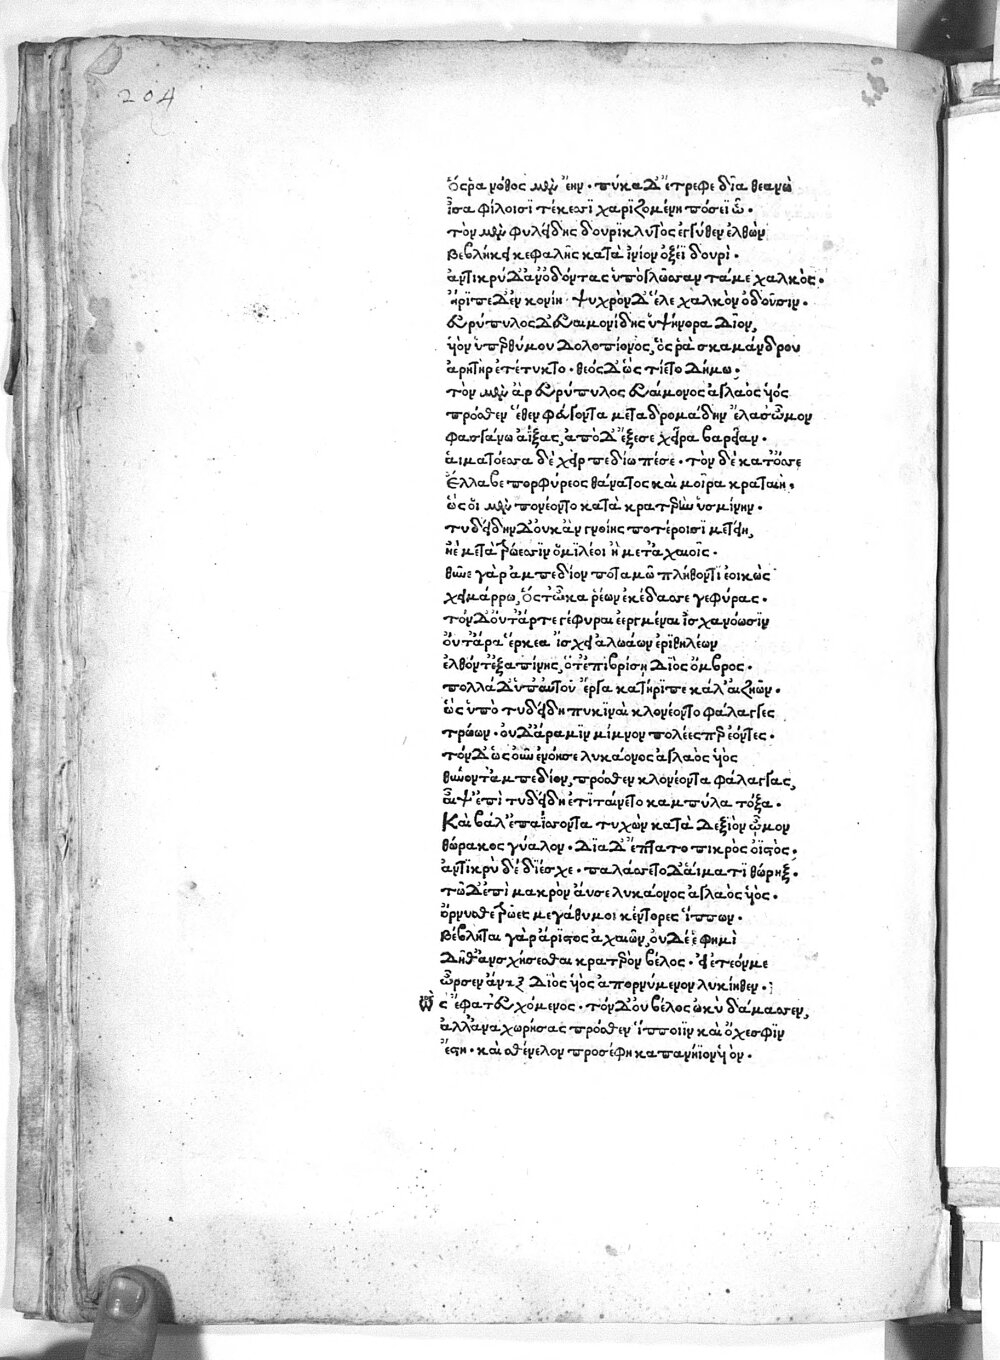 204
ὅς ῥα νόθος μὲν ἔην· πύκα δ' ἔτρεφε δῖα θεανὼ
ἶσα φίλοισϊ τέκεσσϊ χαριζομένη πόσεϊ ὧ·
τὸν μὲν φυλείδης δουρϊκλυτὸς ἐγγύθεν ἐλθὼν
βεβλήκει κεφαλῆς κατὰ ἰνίον ὀξέϊ δουρὶ·
ἀντικρὺ δ' ἀν' ὀδόντας ὑπὸ γλῶσσαν τάμε χαλκὸς·
ἤρϊπε δ' ἐν κονίη· ψυχρὸν δ' ἕλε χαλκὸν ὀδοῦσιν·
εὐρύπυλος δ' εὐαιμονίδης ὑψήνορα δῖον,
υἱὸν ὑπερθύμου δολοπίονος, ὅς ῥα σκαμάνδρου
ἀρητὴρ ἐτέτυκτο· θεὸς δ' ὣς τίετο δήμω·
τὸν μὲν ἂρ εὐρύπυλος εὐαίμονος ἀγλαὸς υἱός
πρόσθεν ἕθεν φεύγοντα μεταδρομάδην ἔλασ' ὦμον
φασγάνω ἀΐξας, ἀπὸ δ' ἔξεσε χεῖρα βαρεῖαν·
αἱματόεσσα δὲ χεὶρ πεδίω πέσε· τὸν δὲ κατ' ὄσσε
ἔλλαβε πορφύρεος θάνατος καὶ μοῖρα κραταιὴ·
ὣς οἱ μὲν πονέοντο κατὰ κρατερὴν ὑσμίνην·
τυδείδην δ' οὐκ ἂν γνοίης ποτέροισϊ μετείη,
ἠὲ μετὰ τρώεσσϊν ὁμϊλέοι ἢ μετ' ἀχαιοῖς·
θῦνε γὰρ ἀμπεδίον ποταμῶ πλήθοντι ἐοικὼς
χειμάρρω, ὅς τ' ὦκα ῥέων ἐκέδασσε γεφύρας·
τὸν δ' οὔτ' ἄρτε γέφυραι ἐεργμέναι ἰσχανόωσϊν
οὔτ' ἄρα ἕρκεα ἴσχει ἀλωάων ἐριθηλέων
ἐλθόντ' ἐξαπίνης, ὅτ' ἐπιβρίση διὸς ὄμβρος·
πολλὰ δ' ὑπ' αὐτοῦ ἔργα κατήριπε κάλ' αἰζηῶν·
ὣς ὑπὸ τυδείδη πυκϊναὶ κλονέοντο φάλαγγες
τρώων· οὐδ' ἄρα μϊν μίμνον πολέες περ ἐόντες·
τὸν δ' ὡς οὖν ἐνόησε λυκάονος ἀγλαὸς υἱός
θύνοντ' ἀμπεδίον, πρόσθεν κλονέοντα φάλαγγας,
αἶψ' ἐπὶ τυδείδη ἐτϊταίνετο καμπύλα τόξα·
Καὶ βάλ' ἐπαΐσσοντα τυχὼν κατὰ δεξιὸν ὦμον
θώρακος γύαλον· διὰ δ' ἔπτατο πικρὸς ὀϊστὸς·
ἀντϊκρὺ δὲ δϊέσχε· παλάσσετο δ' αἵματϊ θώρηξ·
τῶ δ' ἐπὶ μακρὸν ἄυσε λυκάονος ἀγλαὸς υἱὸς·
ὄρνυσθε τρῶες μεγάθυμοι κέντορες ἵππων·
βέβληται γὰρ ἄριστος ἀχαιῶν, οὐδέ ἑ φημὶ
δήθ' ἀνσχήσεσθαι κρατερὸν βέλος· εἰ ἐτεόν με
ὦρσεν ἄναξ διὸς υἱὸς ἀπορνύμενον λυκίηθεν·
ὣς ἔφατ' εὐχόμενος· τὸν δ' οὐ βέλος ὠκὺ δάμασσεν,
ἀλλ' ἀναχωρήσας πρόσθεν ἵπποιϊν καὶ ὄχεσφϊν
ἔστη· καὶ σθένελον προσέφη καπανήϊον υἱὸν·